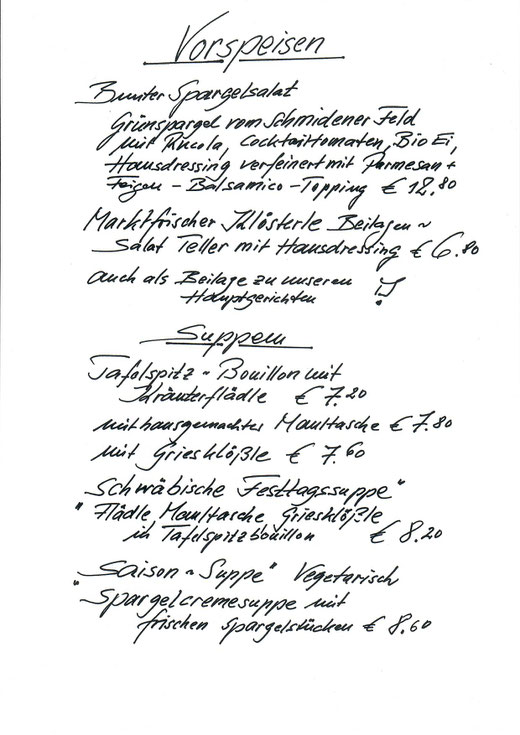 Vorspeisen
Bunter Spargelsalat
Grünspargel vom Schmidener Feld
mit Rucola, Cocktailtomaten, Bio Ei,
Hausdressing verfeinert mit Parmesan +
Feigen - Balsamico - Topping € 12.80
Marktfrischer Klösterle Beilagen ~
Salat Teller mit Hausdressing € 6.80
auch als Beilage zu unseren
Hauptgerichten !
Suppen
Tafelspitz ~ Bouillon mit
Kräuterflädle € 7.20
mit hausgemachter Maultasche € 7.80
mit Griesklößle € 7.60
„Schwäbische Festtagssuppe"
Flädle, Maultasche, Griesklößle
in Tafelspitzbouillon € 8.20
„Saison ~ Suppe" Vegetarisch
Spargelcremesuppe mit
frischen Spargelstücken € 8.60